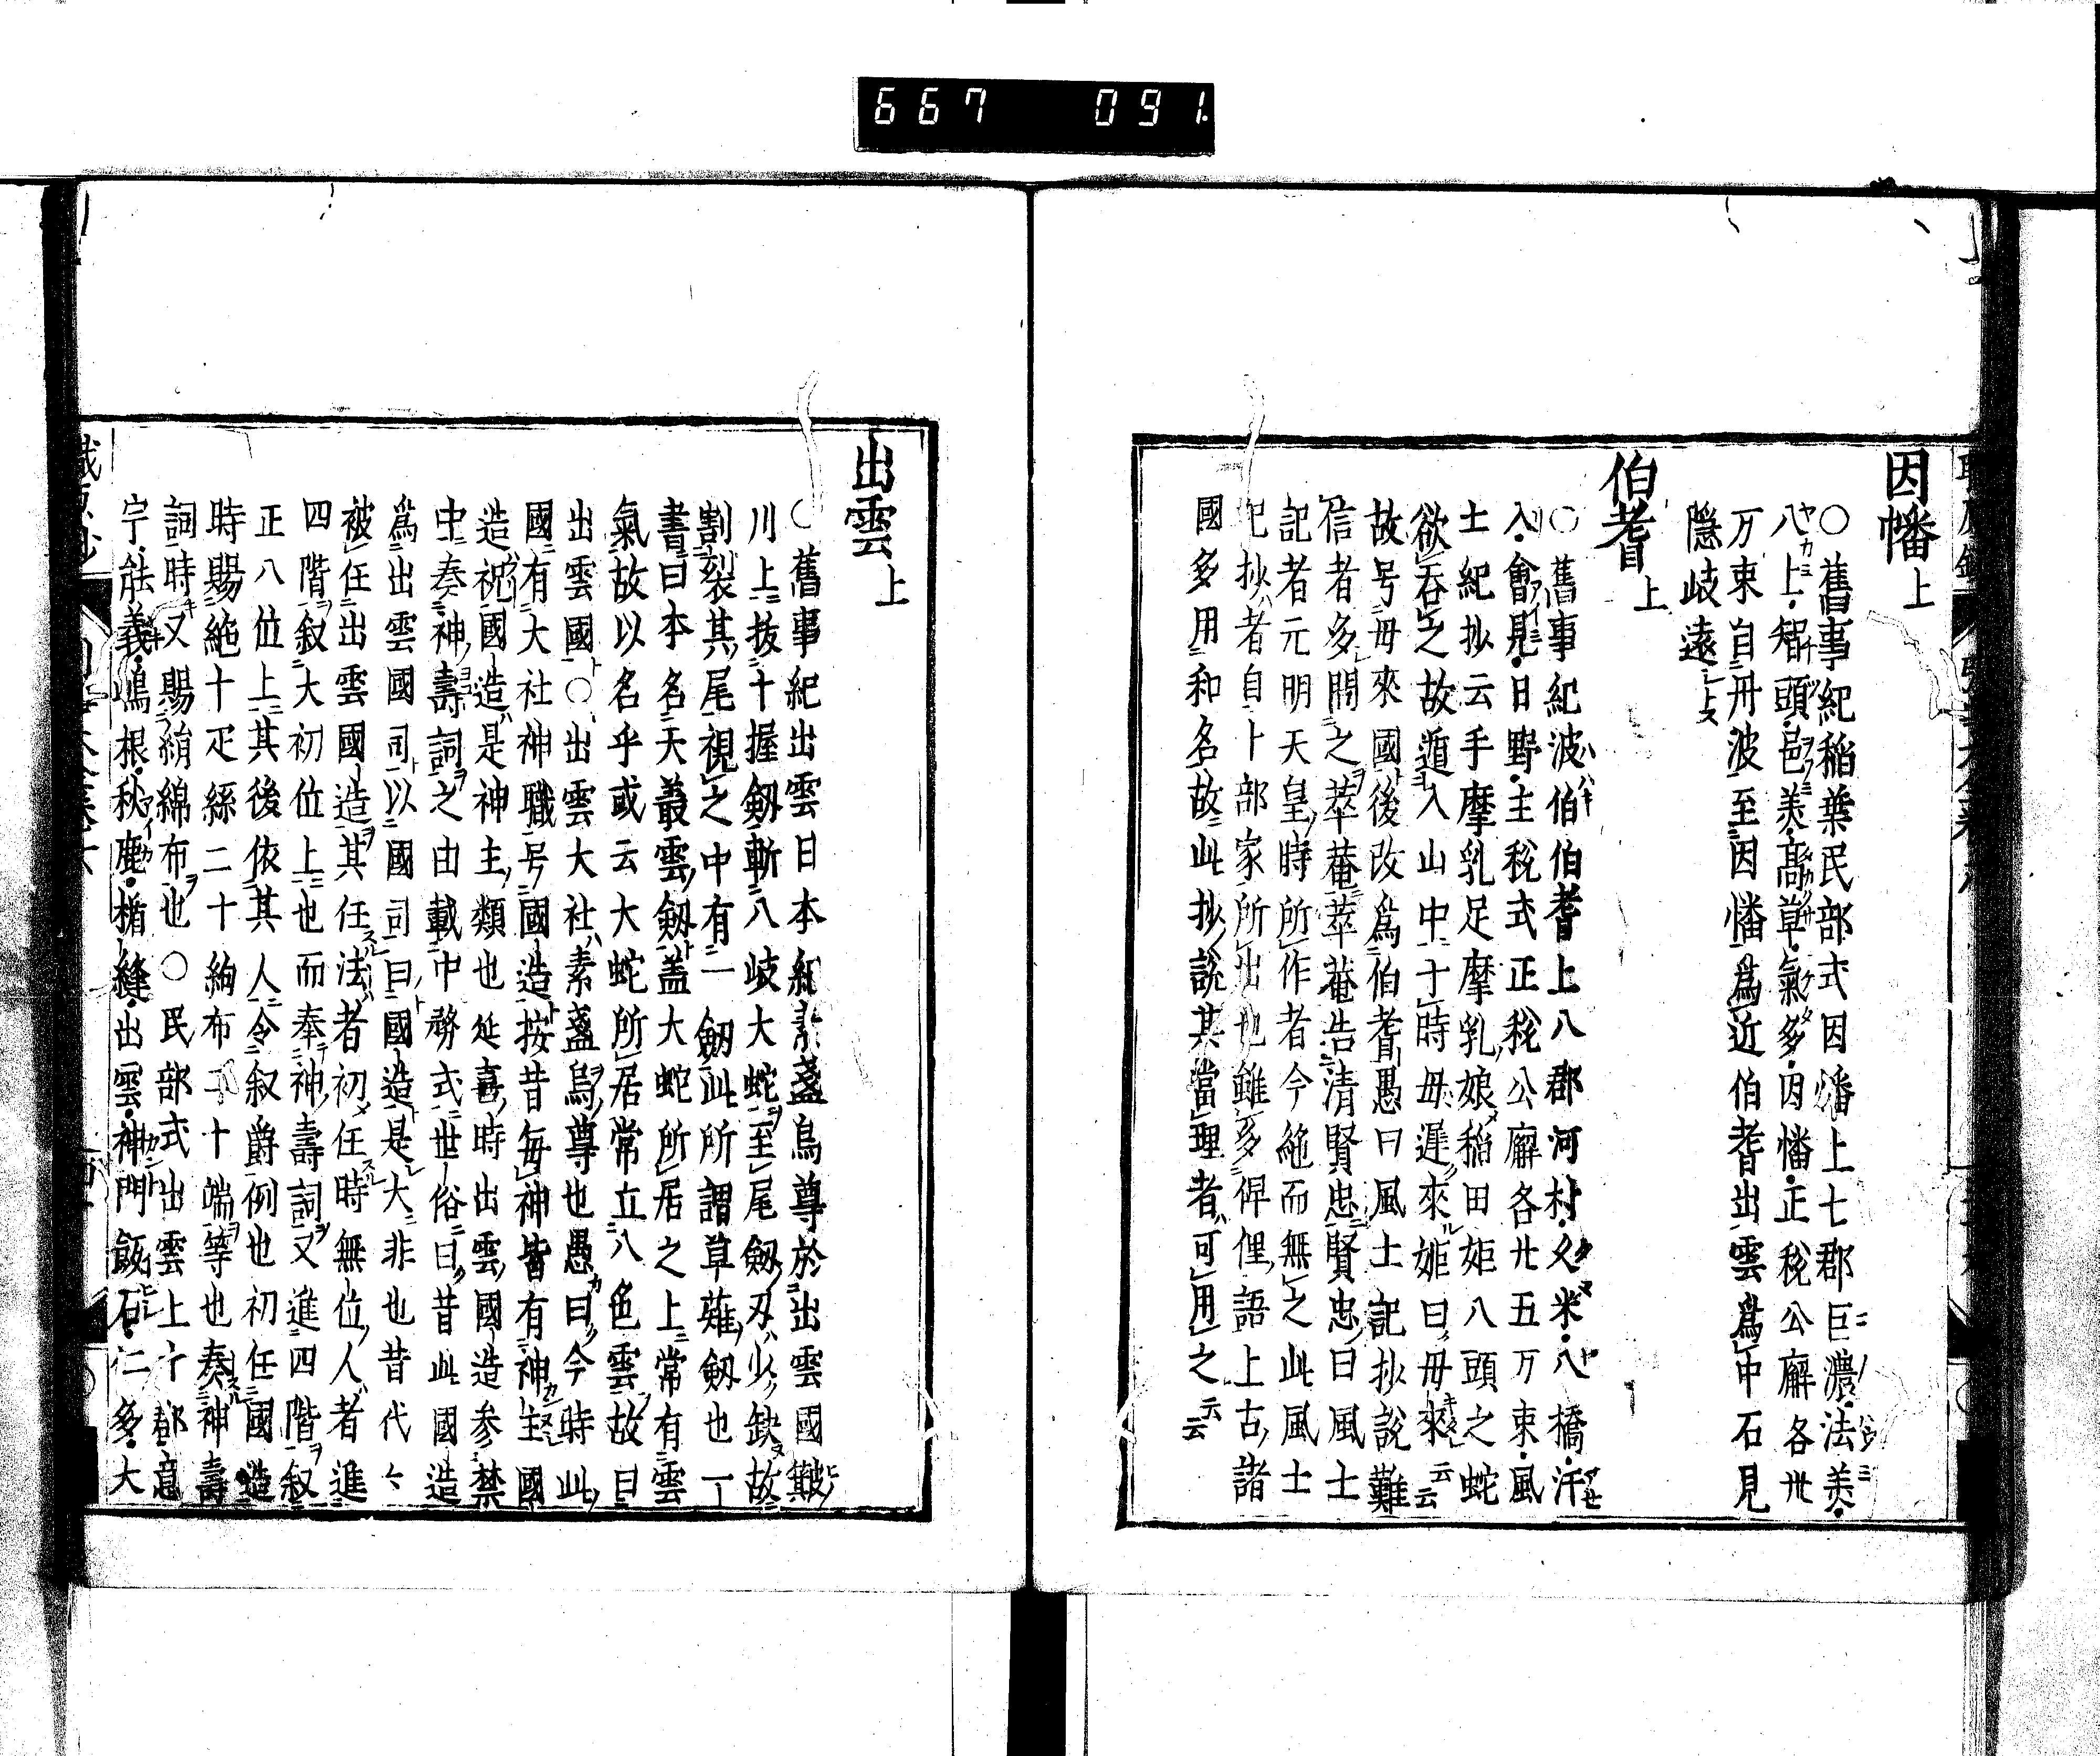 667 091
因幡上
○舊事紀稲葉民部式因幡上七郡巨濃・法美・
八上・智頭・邑美・高草・氣多・因幡・正税公廨各卅
万束自丹波至因幡為近伯耆出雲為中石見
隠岐遠
伯耆上
○舊事紀波伯伯耆上八郡河村・久米・八橋・汗
入・會見・日野・主税式正税公廨各廿五万束・風
士紀抄云手摩乳足摩乳娘稲田姫八頭之蛇
欲呑之故遁入山中于時母遅來姫曰母來云云
故号母來國後改為伯耆愚曰風土記抄説難
信者多問之萃菴萃菴告清賢忠賢忠曰風土
記者元明天皇時所作者今絶而無之此風土
記抄者自卜部家所出也雖多俚俚語上古諸
國多用和名故此抄説其當理者可用之云云
出雲上
○舊事紀出雲日本紀素盞烏尊於出雲國簸
川上抜十握劔斬八岐大蛇至尾劔刃少缺故
割裂其尾視之中有一劔此所謂草薙劔也一
書曰本名天叢雲劔盖大蛇所居之上常有雲
氣故以名乎或云大蛇所居常立八色雲故曰
出雲國○出雲大社素盞烏尊也愚曰今時此
國有大社神職号國造按昔毎神皆有神主國
造祝國造是神主類也延喜時出雲國造参禁
中奏神壽詞之由載中務式世俗曰昔此國造
為出雲國司以國司曰國造是大非也昔代々
被任出雲國造其任法者初任時無位人者進
四階叙大初位上也而奉神壽詞又進四階叙
正八位上其後依其人令叙爵例也初任國造
時賜絁十疋絲二十絇布二十端等也奏神壽
詞時又賜絹綿布也○民部式出雲上十郡意
宇・能義・嶋根・秋鹿・楯縫・出雲・神門飯石・仁多・大